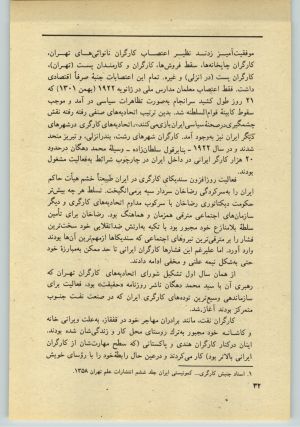 موفقیت‌آمیز زدند نظیر اعتصاب کارگران نانوائی‌های تهران،
کارگران چاپخانه‌ها، سقط فروش‌ها، کارگران و کارمندان پست (تهران)،
کارگران پست (در انزلی) و غیره. تمام این اعتصابات جنبهٔ صرفاً اقتصادی
داشت. فقط اعتصاب معلمان مدارس ملی در ژانویه ۱۹۲۲ (بهمن ۱۳۰۱) که
۲۱ روز طول کشید سرانجام به‌صورت تظاهرات سیاسی در آمد و موجب
سقوط کابینهٔ قوام‌السلطنه شد. بدین ترتیب اتحادیه‌های صنفی رفته رفته نقش
چشمگیری در صحنهٔ سیاسی ایران بازی می‌کنند، اتحادیه‌های کارگری در شهرهای
دیگر ایران نیز به‌وجود آمد. کارگران شهرهای رشت، بندرانزلی، و تبریز متحد
شدند و در سال ۱۹۲۲ - بنابرقول سلطان‌زاده - وسیلهٔ محمد دهگان درحدود
۲۰ هزار کارگر ایرانی در داخل ایران در چارچوب شرائط به‌فعالیت مشغول
بودند.
فعالیت روزافزون سندیکای کارگری در ایران طبیعتاً خشم هیأت حاکم
ایران را به‌سرکردگی رضاخان سردار سپه برمی‌انگیخت. تسلط هر چه بیش‌تر
حکومت دیکتاتوری رضاخان با سرکوب مداوم اتحادیه‌های کارگری و دیگر
سازمان‌های اجتماعی مترقی همزمان و هماهنگ بود. رضاخان برای تأمین
تسلط بلامنازع خود مجبور بود با تکیه به‌ارتش ضدانقلابی خود سخت‌ترین
فشار را بر مترقی‌ترین نیروهای اجتماعی که سندیکاها ازمهم‌ترین آن‌ها بودند
وارد آورد. اما علیرغم این فشارها کارگران ایرانی تا حد ممکن به‌مبارزهٔ خود
حتی به‌شکل نیمه علنی و مخفی ادامه دادند.
از همان سال اول تشکیل شورای اتحادیه‌های کارگران تهران که
رهبری آن با سید محمد دهگان ناشر روزنامه «حقیقت» بود، فعالیت برای
سازماندهی وسیع‌ترین توده‌های کارگری ایران که در صنعت نفت جنوب
متمرکز بودند آغاز شد.
کارگران نفت، مانند برادران مهاجر خود در قفقاز، به‌علت ویرانی خانه
و کاشانه خود مجبور به‌ترک روستای محل کار و زندگی‌شان شده بودند.
اینان درکنار کارگران هندی و پاکستانی (که سطح مهارت‌شان از کارگران
ایرانی بالاتر بود) کار می‌کردند و درعین حال رابطهٔ‌خود را با رؤسای خویش
۱. اسناد جنبش کارگری... کمونیستی ایران جلد ششم انتشارات علم تهران ۱۳۵۸.
۳۲